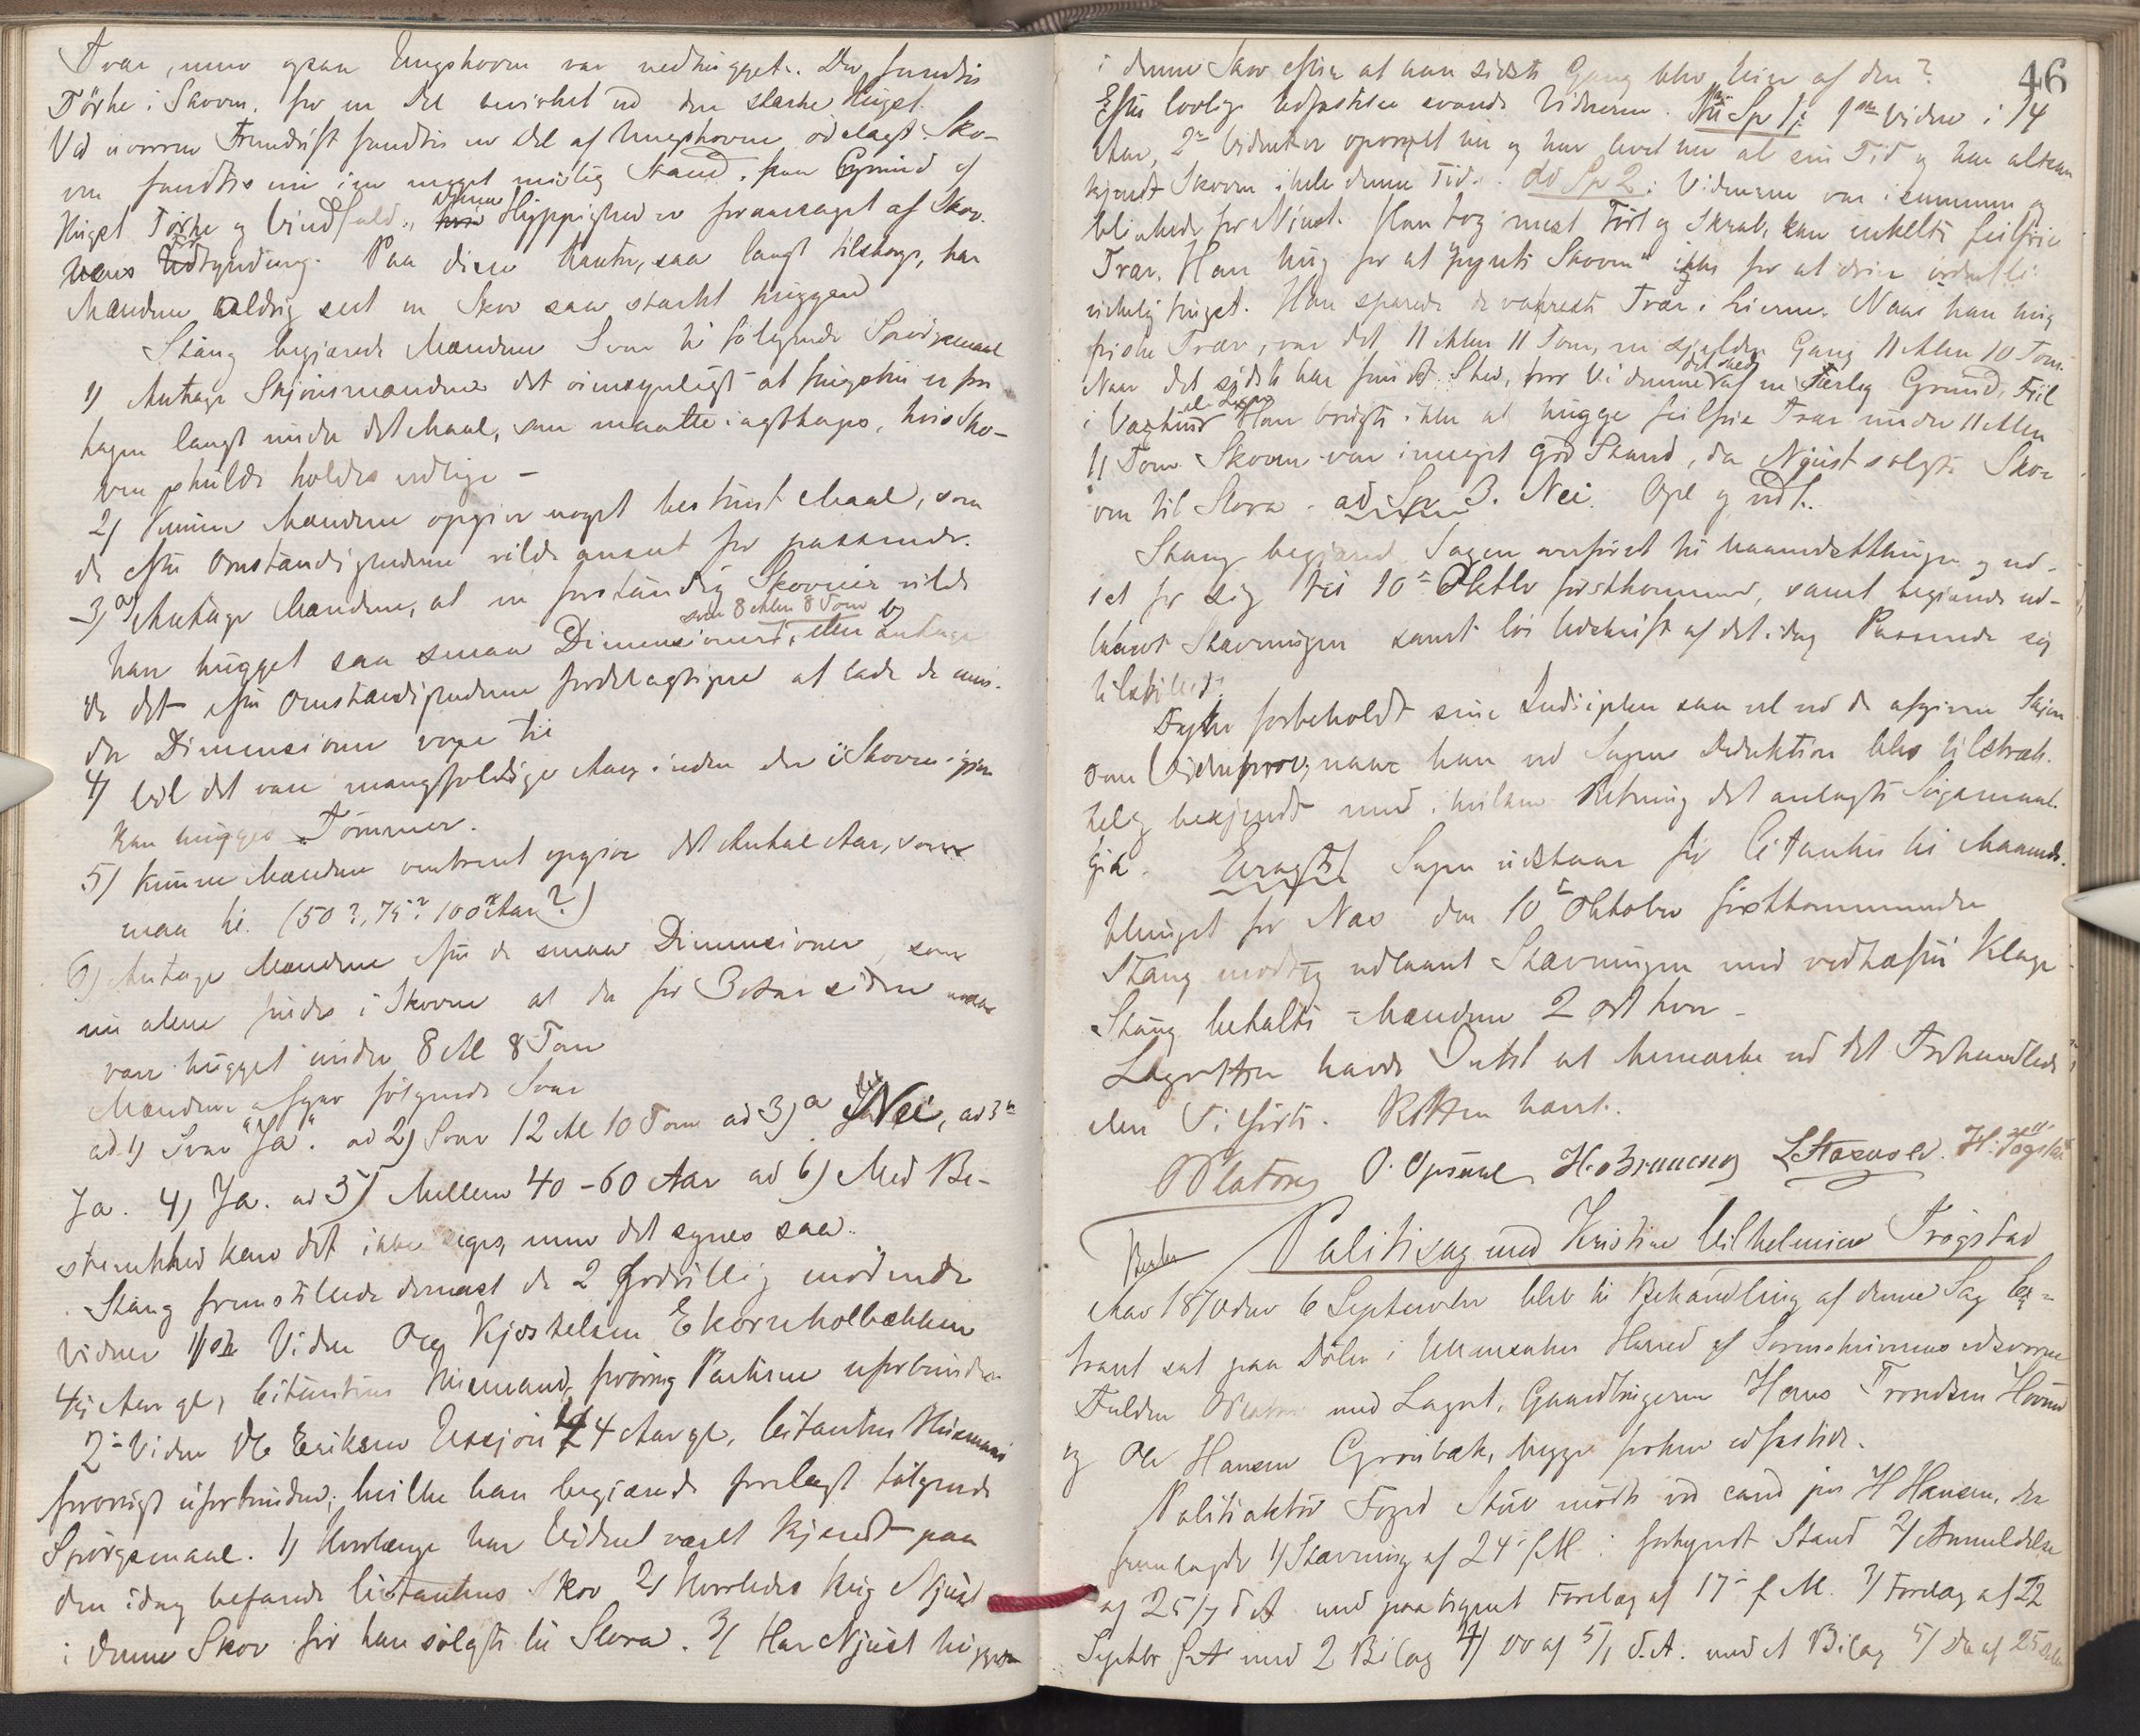 Trær, men ogsaa Ungskoven var nedhugget. Der fandtes
Törke i Skoven, for en Del bevirket ved den stærke Hugst.
Ved        Fremdrift fandtes en Del af Ungskoven ödelagt. Sko-
ven fandtes nu i en meget mislig Stand, paa Grund af
Hugst Törke og Vindfald, Hyppighed er foraarsaget af Sko-
vens Udtynding. Paa disse Kanter, saa langt tilskogs, har
Mændene aldrig seet en Skov saa stærkt huggen
Stang begjærede Mændenes Svar til fölgende Spörgsmaal
1) Antage Skjönsmændene det öiensynligt at hugsten er fore-
tagen langt under det Maal, som maatte iagttages, hvis Sko-
ven skulde holdes vedlige –
2) Kunne Mændene opgive noget bestemt Maal, som
de efter Omstændighederne vilde anseet for passende.
3) a Antage Mændene, at en forstandig Skoveier vilde
have hugget saa smaa Dimensioner, som 8 Alen 8 Tom eller b antage
de det efter Omstændighederne fordelagtigere at lade de min-
dre Dimensioner voxe til
4) Vil det vare mangfoldige Aar, inden der i Skoven igjen
kan hugges Tömmer.
5) Kunne Mændene omtrent opgive det Antal Aar, som
maa til. (50?, 75? 100 Aar?)
6) Antage Mændene efter de smaa Dimensioner, som
nu alene findes i Skoven at der for 3 Aar siden maa
være hugget under 8 Al 8 Tom
Mændene afgav fölgende Svar
ad 1) Svar "Ja". ad 2) Svar 12 Al 10 Tom ad 3) a Nei, ad 3 b
Ja. 4) Ja. ad 5) Mellem 40 – 60 Aar ad 6) Med Be-
stemthed kan det ikke siges, men det synes saa.
Stang fremstillede dernæst de 2 godvillig mödende
Vidner 1ste Vidne Ole Kjostelsen Ekornholbækken
         Aar gl, Citantens Husmand, forövrig Parterne uforbunden
2de Vidne Ole Eriksen         44 Aar gl, Citantens Husmand
forövrigt uforbunden; hvilke han begjærede forelagt fölgende
Spörgsmaal. 1) Hvorlænge har Vidnet været kjendt paa
den idag befarede Citantens Skov 2) Hvorledes hug Njust
i denne Skov för han solgte til Slora. 3) Har Njust hugget
46
i denne Skov efter at han sidste Gang blev Eier af den?
Efter lovlig Edfæstelse svarede Vidnerne. Til Sp 1: 1ste Vidne i 14
Aar, 2det Vidnet er opvoxet her og har levet her al sin Tid og har altsaa
kjendt Skoven i hele denne Tid. ad Sp 2: Vidnerne var i sammen og
blinkede for Njust. Han tog mest Tört og Skrab, kun enkelte feilfrie
Trær. Han hug for at "pynte Skoven" ikke for at drive ordentlig
virkelig Hugst. Han sparede de vakreste Trær i Lierne. Naar han hug
friske Trær, var det 11 Alen 11 Tom, en sjelden Gang 11 Alen 10 Tom.
Naar det sidste har fundet Sted, tror Vidnerne det skede af en særlig Grund, Feil
i Væxten        Han brugte ikke at hugge feilfrie Trær under 11 Alen
11 Tom Skoven var i meget god Stand, da Njust solgte Sko-
ven til Slora. ad Sp 3. Nei. Opl og vedt.
Stang begjærede Sagen anfört til Maanedsthinget og ud-
sat for sig til 10de Oktbr förstkommende, samt begjærede ud-
laant Stævningen samt lös Udskrift af det idag Passerede sig
tilstillet.
        forbeholdt sine         saa vel ved de afgivne Skjön
som Vidneprov, naar han ved Sagens Deduktion blev tilstræk-
kelig bekjendt med i hvilken Retning det anlagte Sögsmaal
gik. Eragtet Sagen udstaar for Citanten til Maaneds-
thinget for Næs den 10de Oktober förstkommende
Stang modtog udlaant Stævningen med vedhæftet Klage
Stang betalte Mændene 2 ort hver –
Lagretten havde Intet at bemærke ved det Forhandlede
eller Tilförte. Retten hævet.
O Platou O. Opsahl H. O Bruenes L Stasvold. H. Togstad
Politisag med Kristine Vilhelmine Trögstad
Aar 1870 den 6 September blev til Behandling af denne Sag Ex-
traret sat paa Dölen i Ullensakers Herred af Sorenskriverens edsvorne
Fuldm Platou med Lagret, Gaardbrugerne Hans Trondsen Hovind
og Ole Hansen Grönbæk, begge forhen edfæstede.
Politiaktor Foged Stub mödte ved cand jur H Hansen, der
fremlagde 1) Stævning af 24de f M i forkyndt Stand 2) Anmeldelse
af 25/7 d A med paategnet Forelæg af 17de f M. 3) Forelæg af 22
Septbr f A med 2 Bilag 4) Do af 5/1 d. A. med et Bilag 5) Do af 25